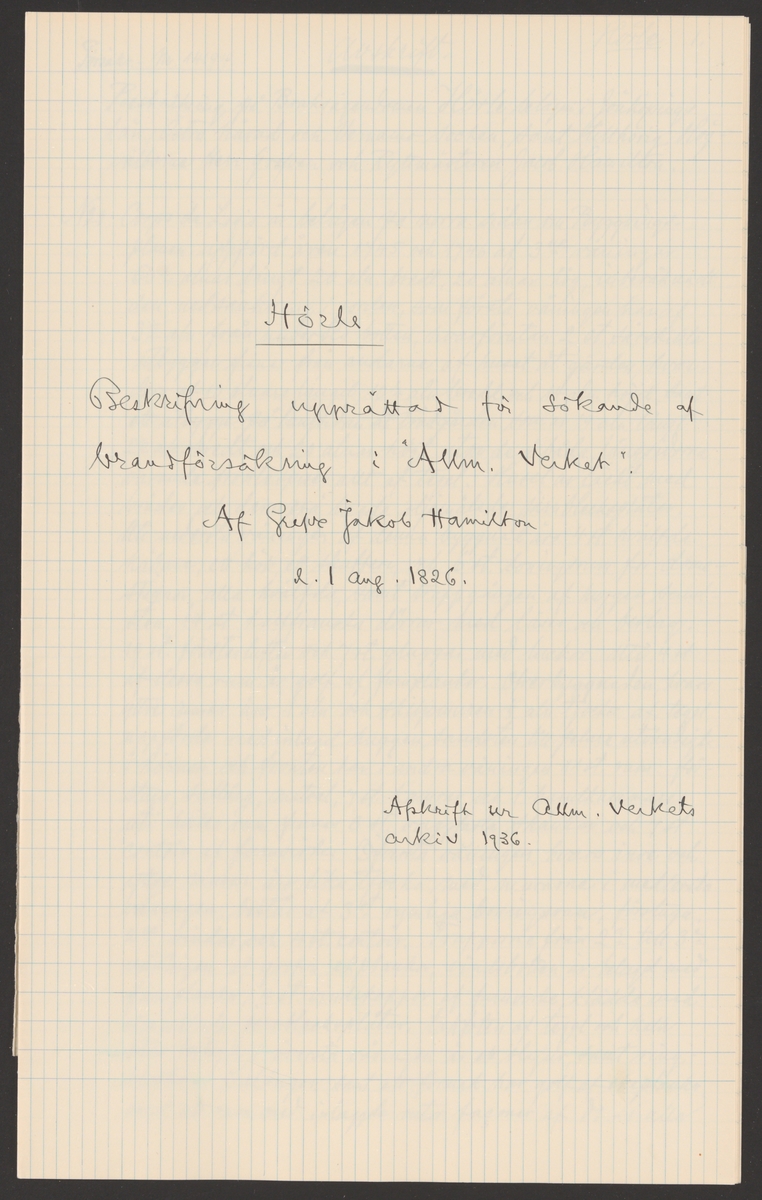 Hörle
Beskrifning upprättad för sökande af
brandförsäkring i "Allm. Verket".
Af Grefve Jakob Hamilton
d. 1 aug. 1826.
Afskrift ur Allm. Verkets
arkiv 1936.